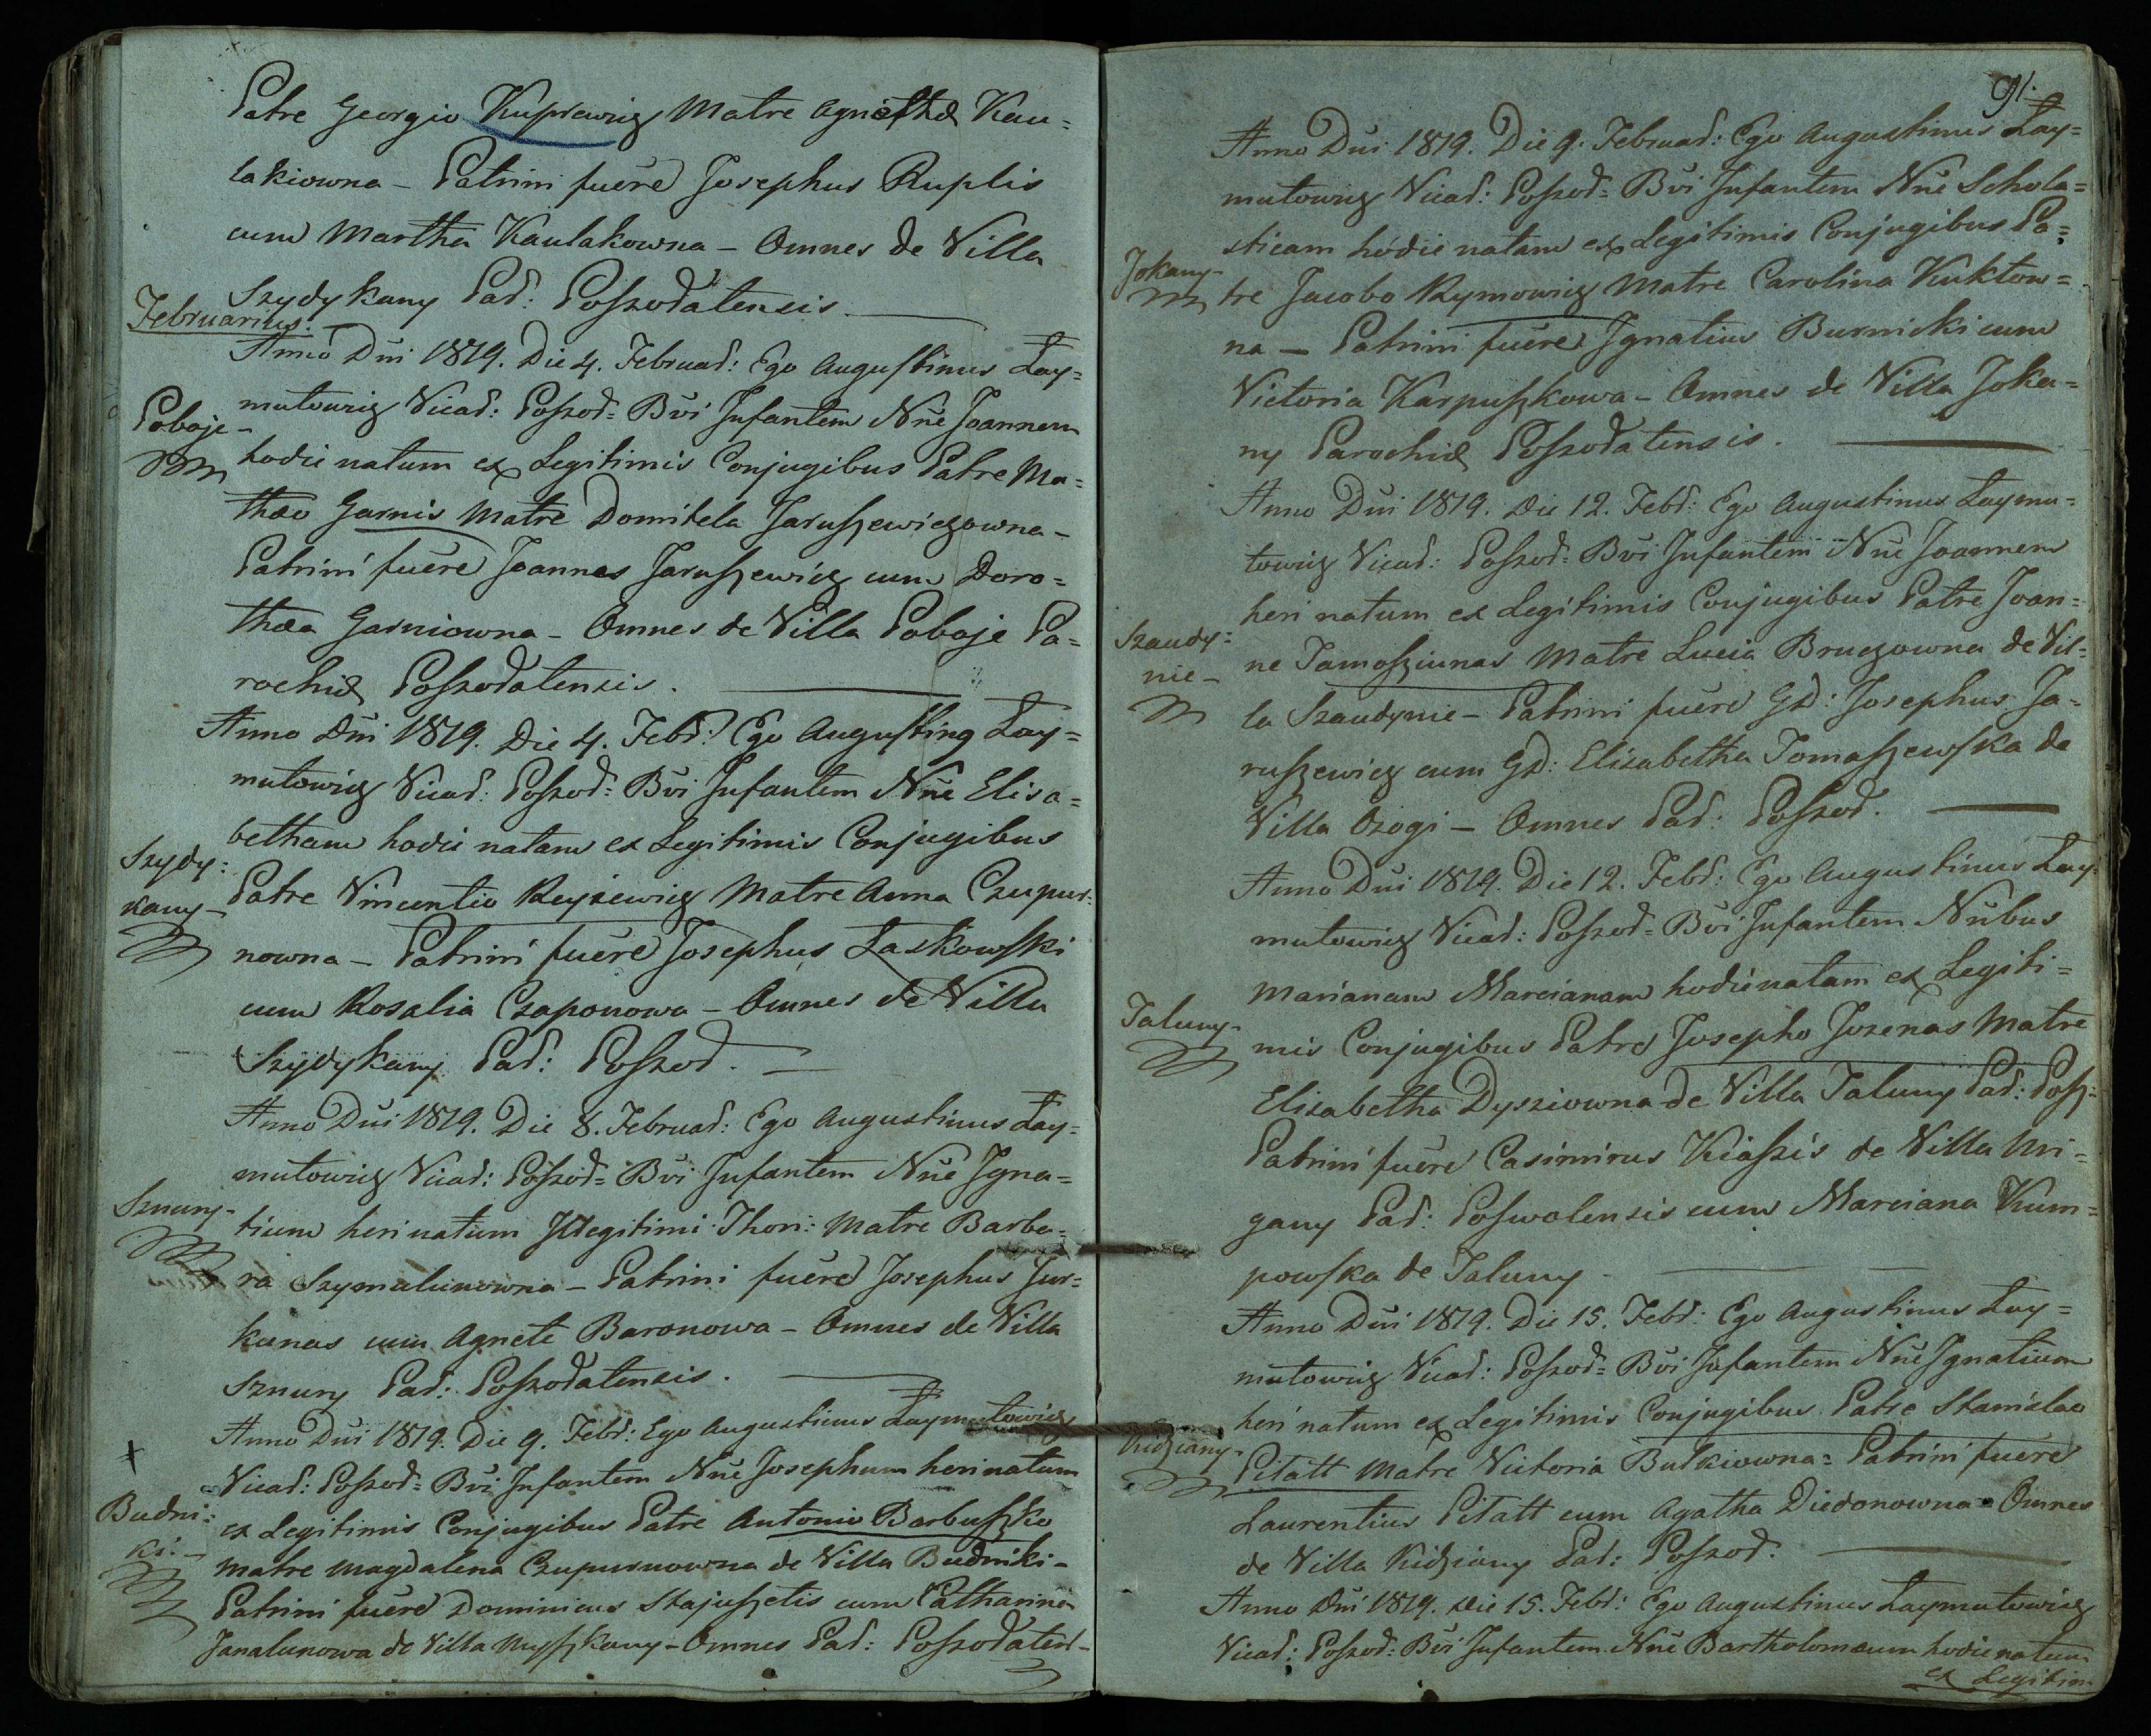 Patre Georgio Kuprewicz Matre Agnethæ Kau=
lakiowna – Patrini fuere Josephus Ruplis
cum Martha Kaulakowna – Omnes de Villa
Szydykany Par: Poszodatensis.
Februarius.
Anno Dni 1819. Die 4. Februar: Ego Augustinus Łay=
mutowicz Vicar: Poszod= Bvi Infantem Nne Joannem
Poboje –
hodie natum ex Legitimis Conjugibus Patre Ma=
thæo Garnis Matre Domitela Jaruszewiczowna –
Patrini fuere Joannes Jaruszewicz cum Doro=
thæa Garniowna – Omnes de Villa Poboje Pa=
rochiæ Poszodatensis.
Anno Dni 1819. Die 4. Febr: Ego Augustinq Łay=
mutowicz Vicar: Poszod= Bvi Infantem Nne Elisa=
betham hodie natam ex Legitimis Conjugibus
Szydy=
kany –
Patre Vincentio Reyżewicz Matre Anna Czupur=
nowna – Patrini fuere Josephus Laskowski
cum Rosalia Czaponowa – Omnes de Villa
Szydykany Par: Poszod.
Anno Dni 1819. Die 8. Februar: Ego Augustinus Łay=
mutowicz Vicar: Poszod= Bvi Infantem Nne Igna=
Sznury –
tium heri natum Illegitimi Thori: Matre Barba=
ra Szymalunowna – Patrini fuere Josephus Jur=
kunas cum Agnete Baronowa – Omnes de Villa
Sznury Par: Poszodatensis.
Anno Dni 1819. Die 9. Febr: Ego Augustinus Łaymutowicz
Vicar: Poszod= Bvi Infantem Nne Josephum heri natum
Budni=
ki. –
ex Legitimis Conjugibus Patre Antonio Barbuszko
Matre Magdalena Czupurnowna de Villa Budniki –
Patrini fuere Dominicus Stajuszetis cum Catharina
Janalunowa de Villa Myszkany – Omnes Par: Poszodaten –
91.
Anno Dni 1819. Die 9. Februar: Ego Augustinus Łay=
mutowicz Vicar: Poszod= Bvi Infantem Nne Schola=
sticam hodie natam ex Legitimis Conjugibus Pa=
Jokany –
tre Jacobo Rymowicz Matre Carolina Kuktow=
na – Patrini fuere Ignatius Burnicki cum
Victoria Karpuszkowa – Omnes de Villa Joka=
ny Parochiæ Poszodatensis.
Anno Dni 1819. Die 12. Febr: Ego Augustinus Łaymu=
towicz Vicar: Poszod= Bvi Infantem Nne Joannem
heri natum ex Legitimis Conjugibus Patre Joan=
Szaudy=
nie –
ne Tamosziunas Matre Lucia Bruczowna de Vil=
la Szaudynie – Patrini fuere GD: Josephus Ja=
ruszewicz cum GD: Elisabetha Tomaszewska de
Villa Ozogi – Omnes Par: Poszod.
Anno Dni 1819. Die 12. Febr: Ego Augustinus Łay=
mutowicz Vicar: Poszod= Bvi Infantem Nnbus
Marianam Marcianam hodie natam ex Legiti=
Taluny –
mis Conjugibus Patre Josepho Jozenas Matre
Elisabetha Dysziowna de Villa Taluny Par: Posz=
Patrini fuere Casimirus Kiaszis de Villa Uri=
gany Par: Poswolensis cum Marciana Kum=
powska de Taluny
Anno Dni 1819. Die 15. Febr: Ego Augustinus Łay=
mutowicz Vicar: Poszod= Bvi Infantem Nne Ignatium
heri natum ex Legitimis Conjugibus Patre Stanislao
Kidziany –
Pitatt Matre Victoria Butkiowna = Patrini fuere
Laurentius Pitatt cum Agatha Diedonowna – Omnes
de Villa Kidziany Par: Poszod.
Anno Dni 1819. Die 15. Febr: Ego Augustinus Łaymutowicz
Vicar: Poszod= Bvi Infantem Nne Bartholomæum hodie natum
ex Legitim